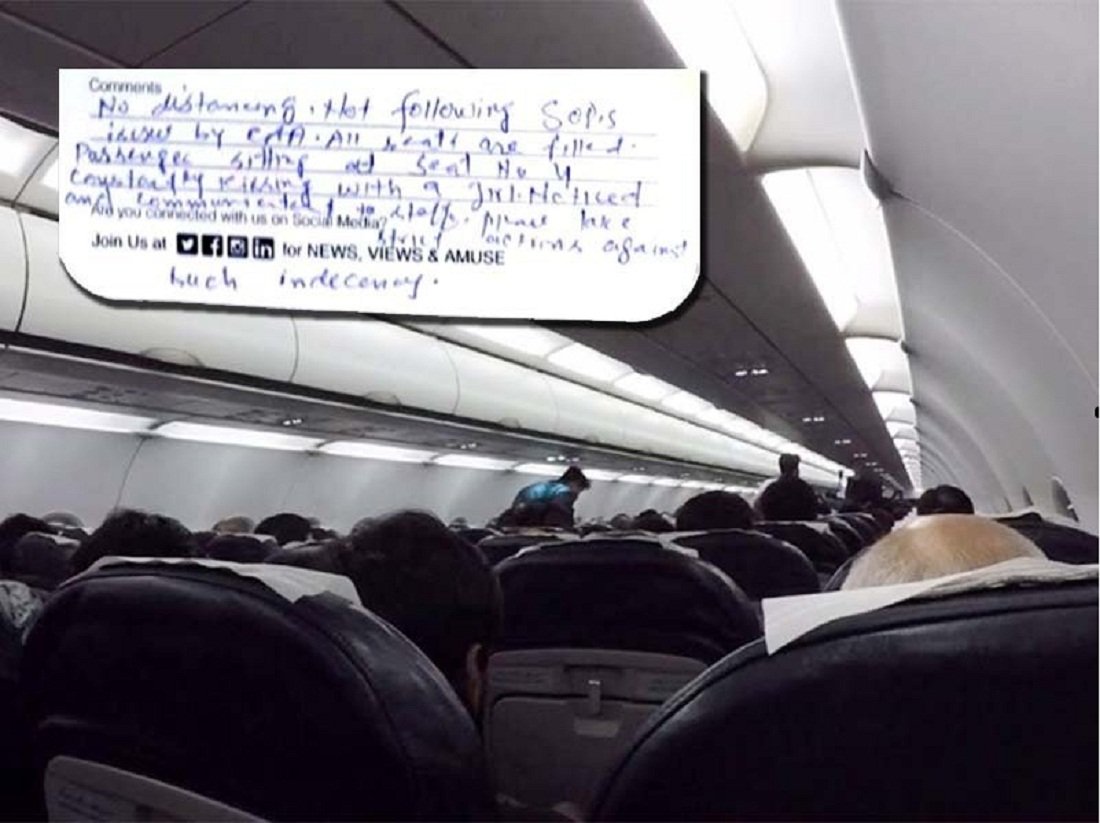 Comments
No distancing. Not following SOP.s
issued by CAA. All seats are filled.
Passenger sitting at Seat No 4
Constantly kissing with a girl. Noticed
and communicated to staff. please take
Are you connected with us on Social Media?
strict actions against
Join Us at for NEWS, VIEWS & AMUSE
such indecency.